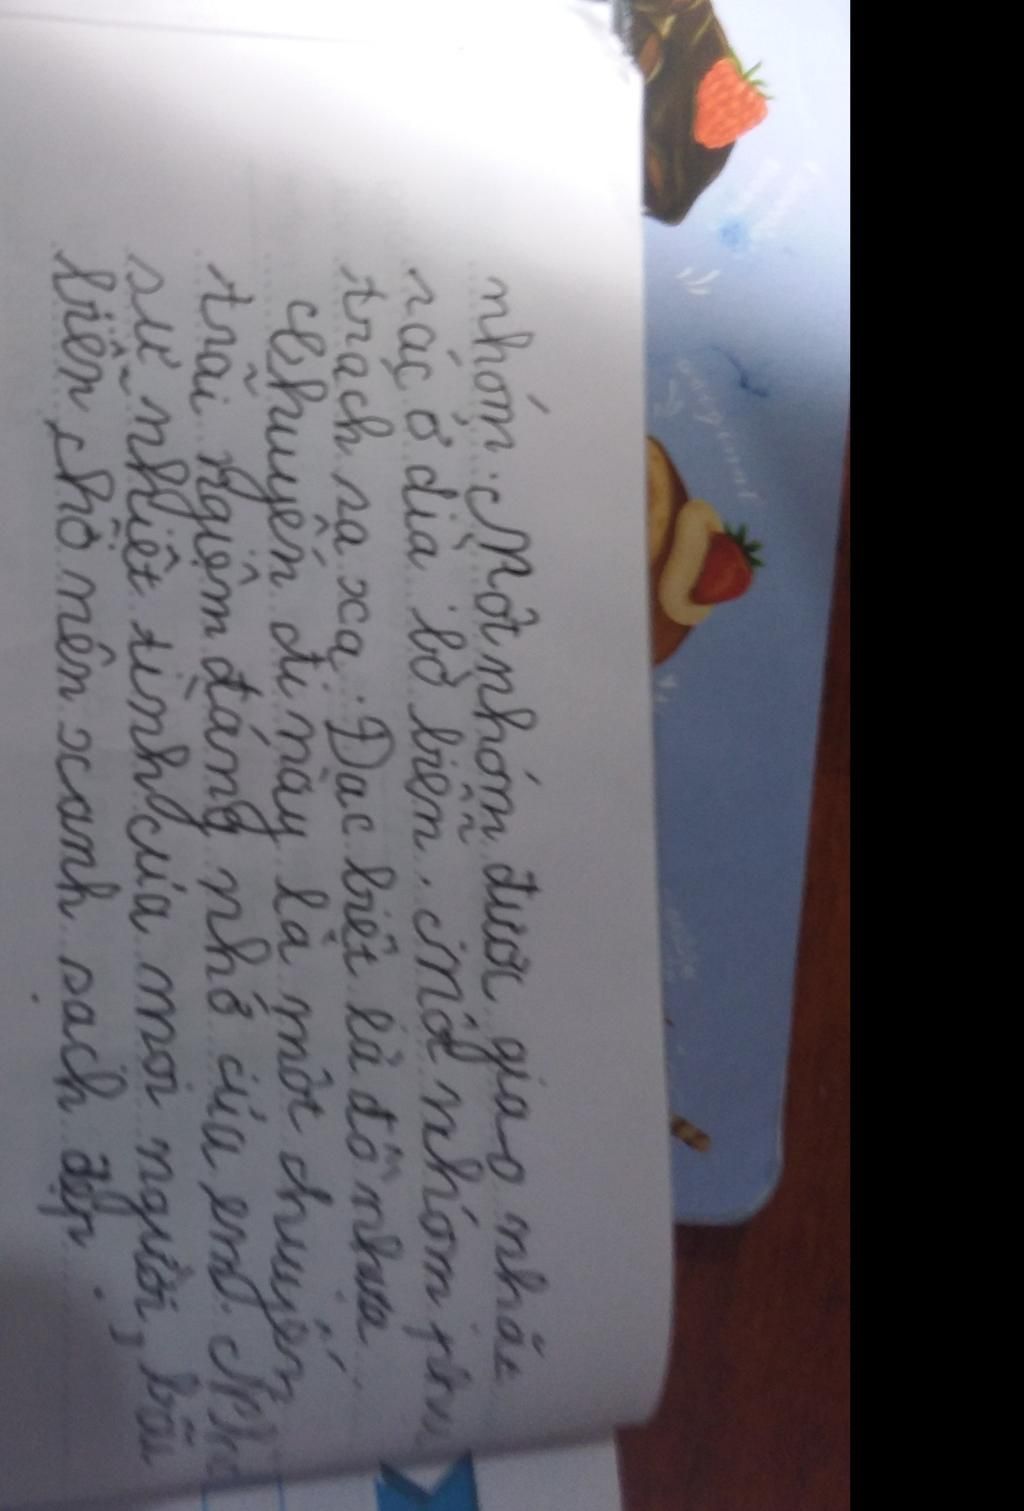 nhóm. Một nhóm được giao nhặt
rác ở dìa bờ biển. Một nhóm
trách ra xa. Đặc biệt là đồ nhựa
Chuyến đi này là một chuyến
trải ngiệm đáng nhớ của em. Nhờ
sử nhiệt tình của mọi người, bãi
biển chở nên xanh sạch đẹp.